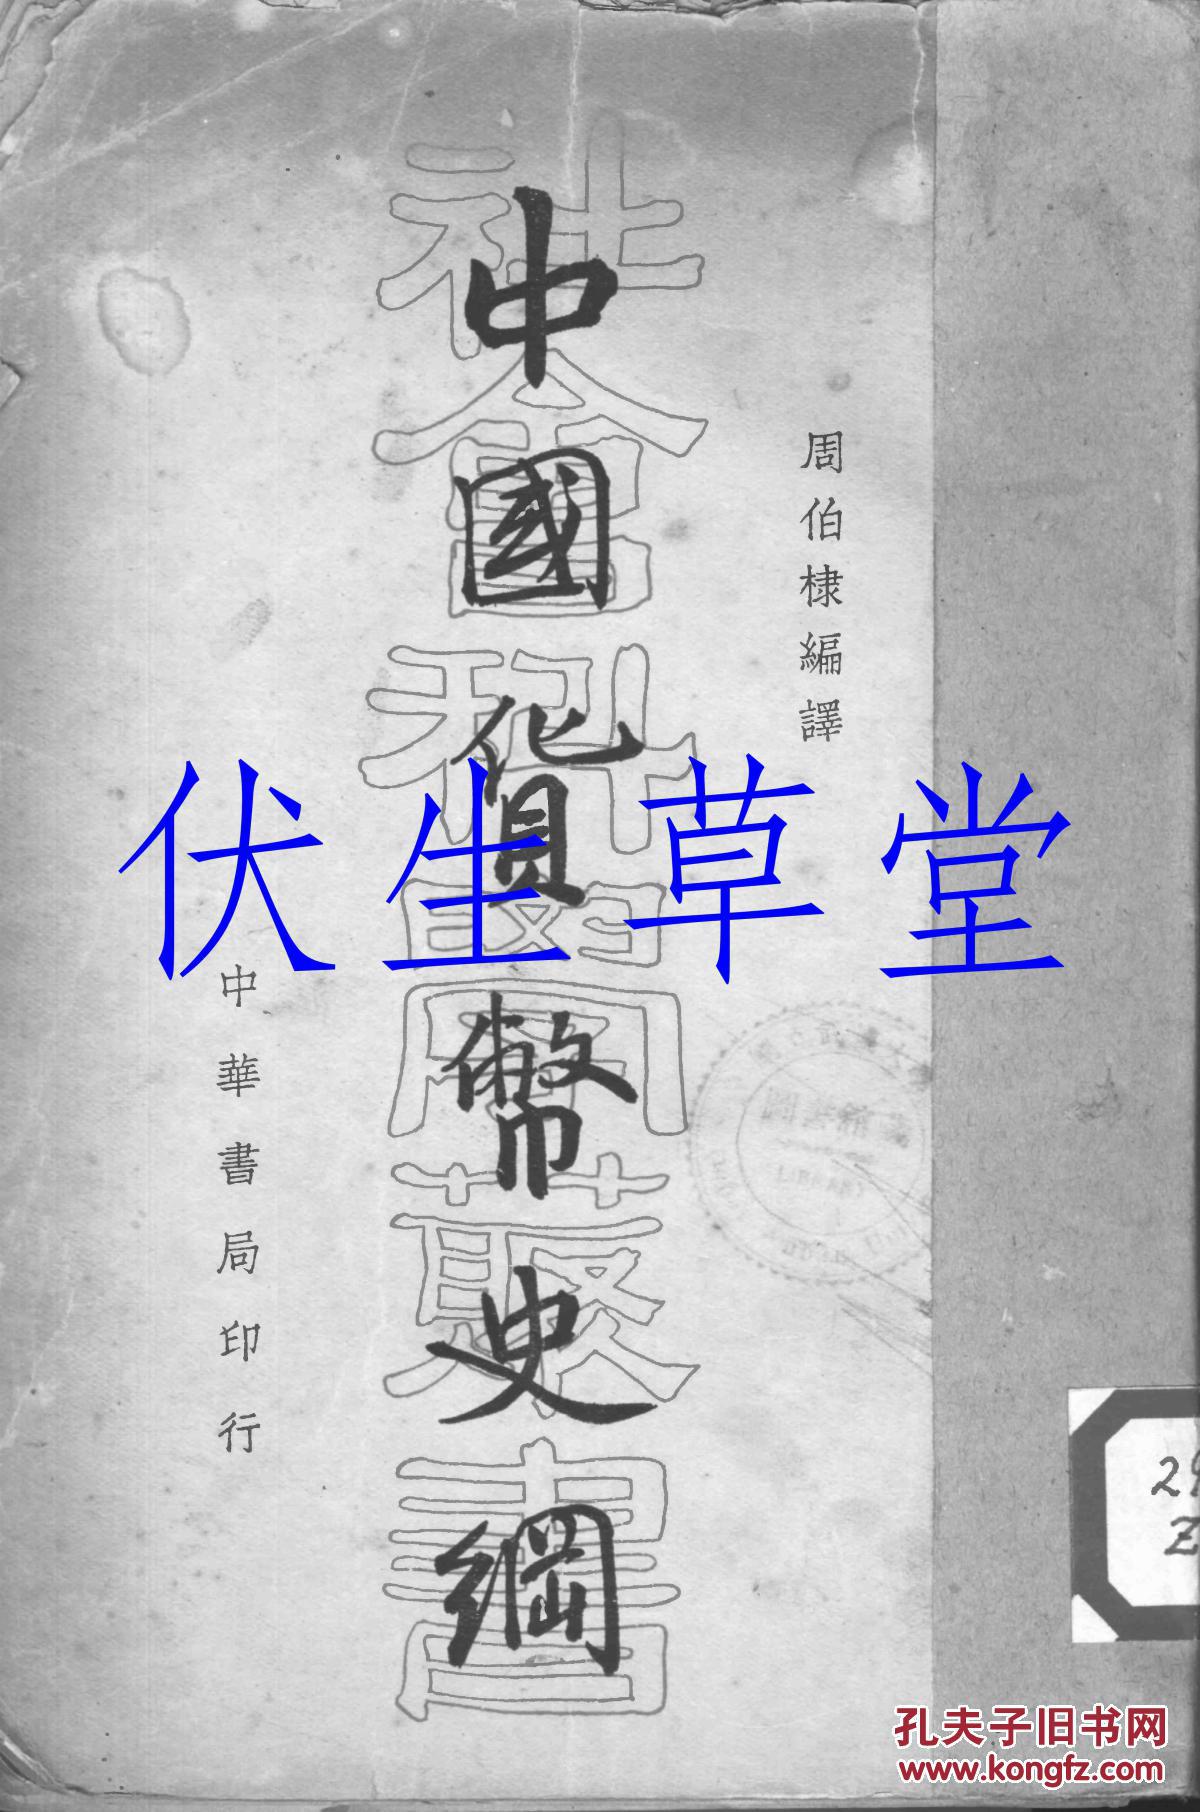 周伯棣編譯
中國貨幣史綱
社會科學叢書
中華書局印行
伏生草堂
29
Z
孔夫子旧书网
www.kongfz.com